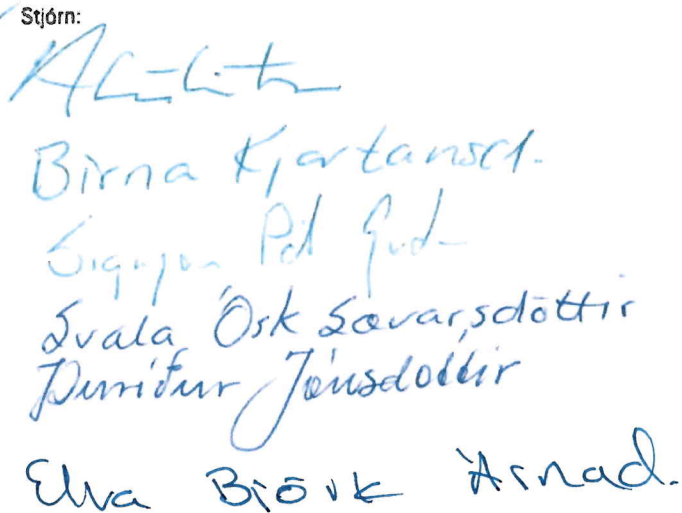 Stjórn:
Birna Kjartansd.
Sigurjón Pál Guð
Svala Ósk Sævarsdóttir
Þuríður Jónsdóttir
Elva Björk Árnad.